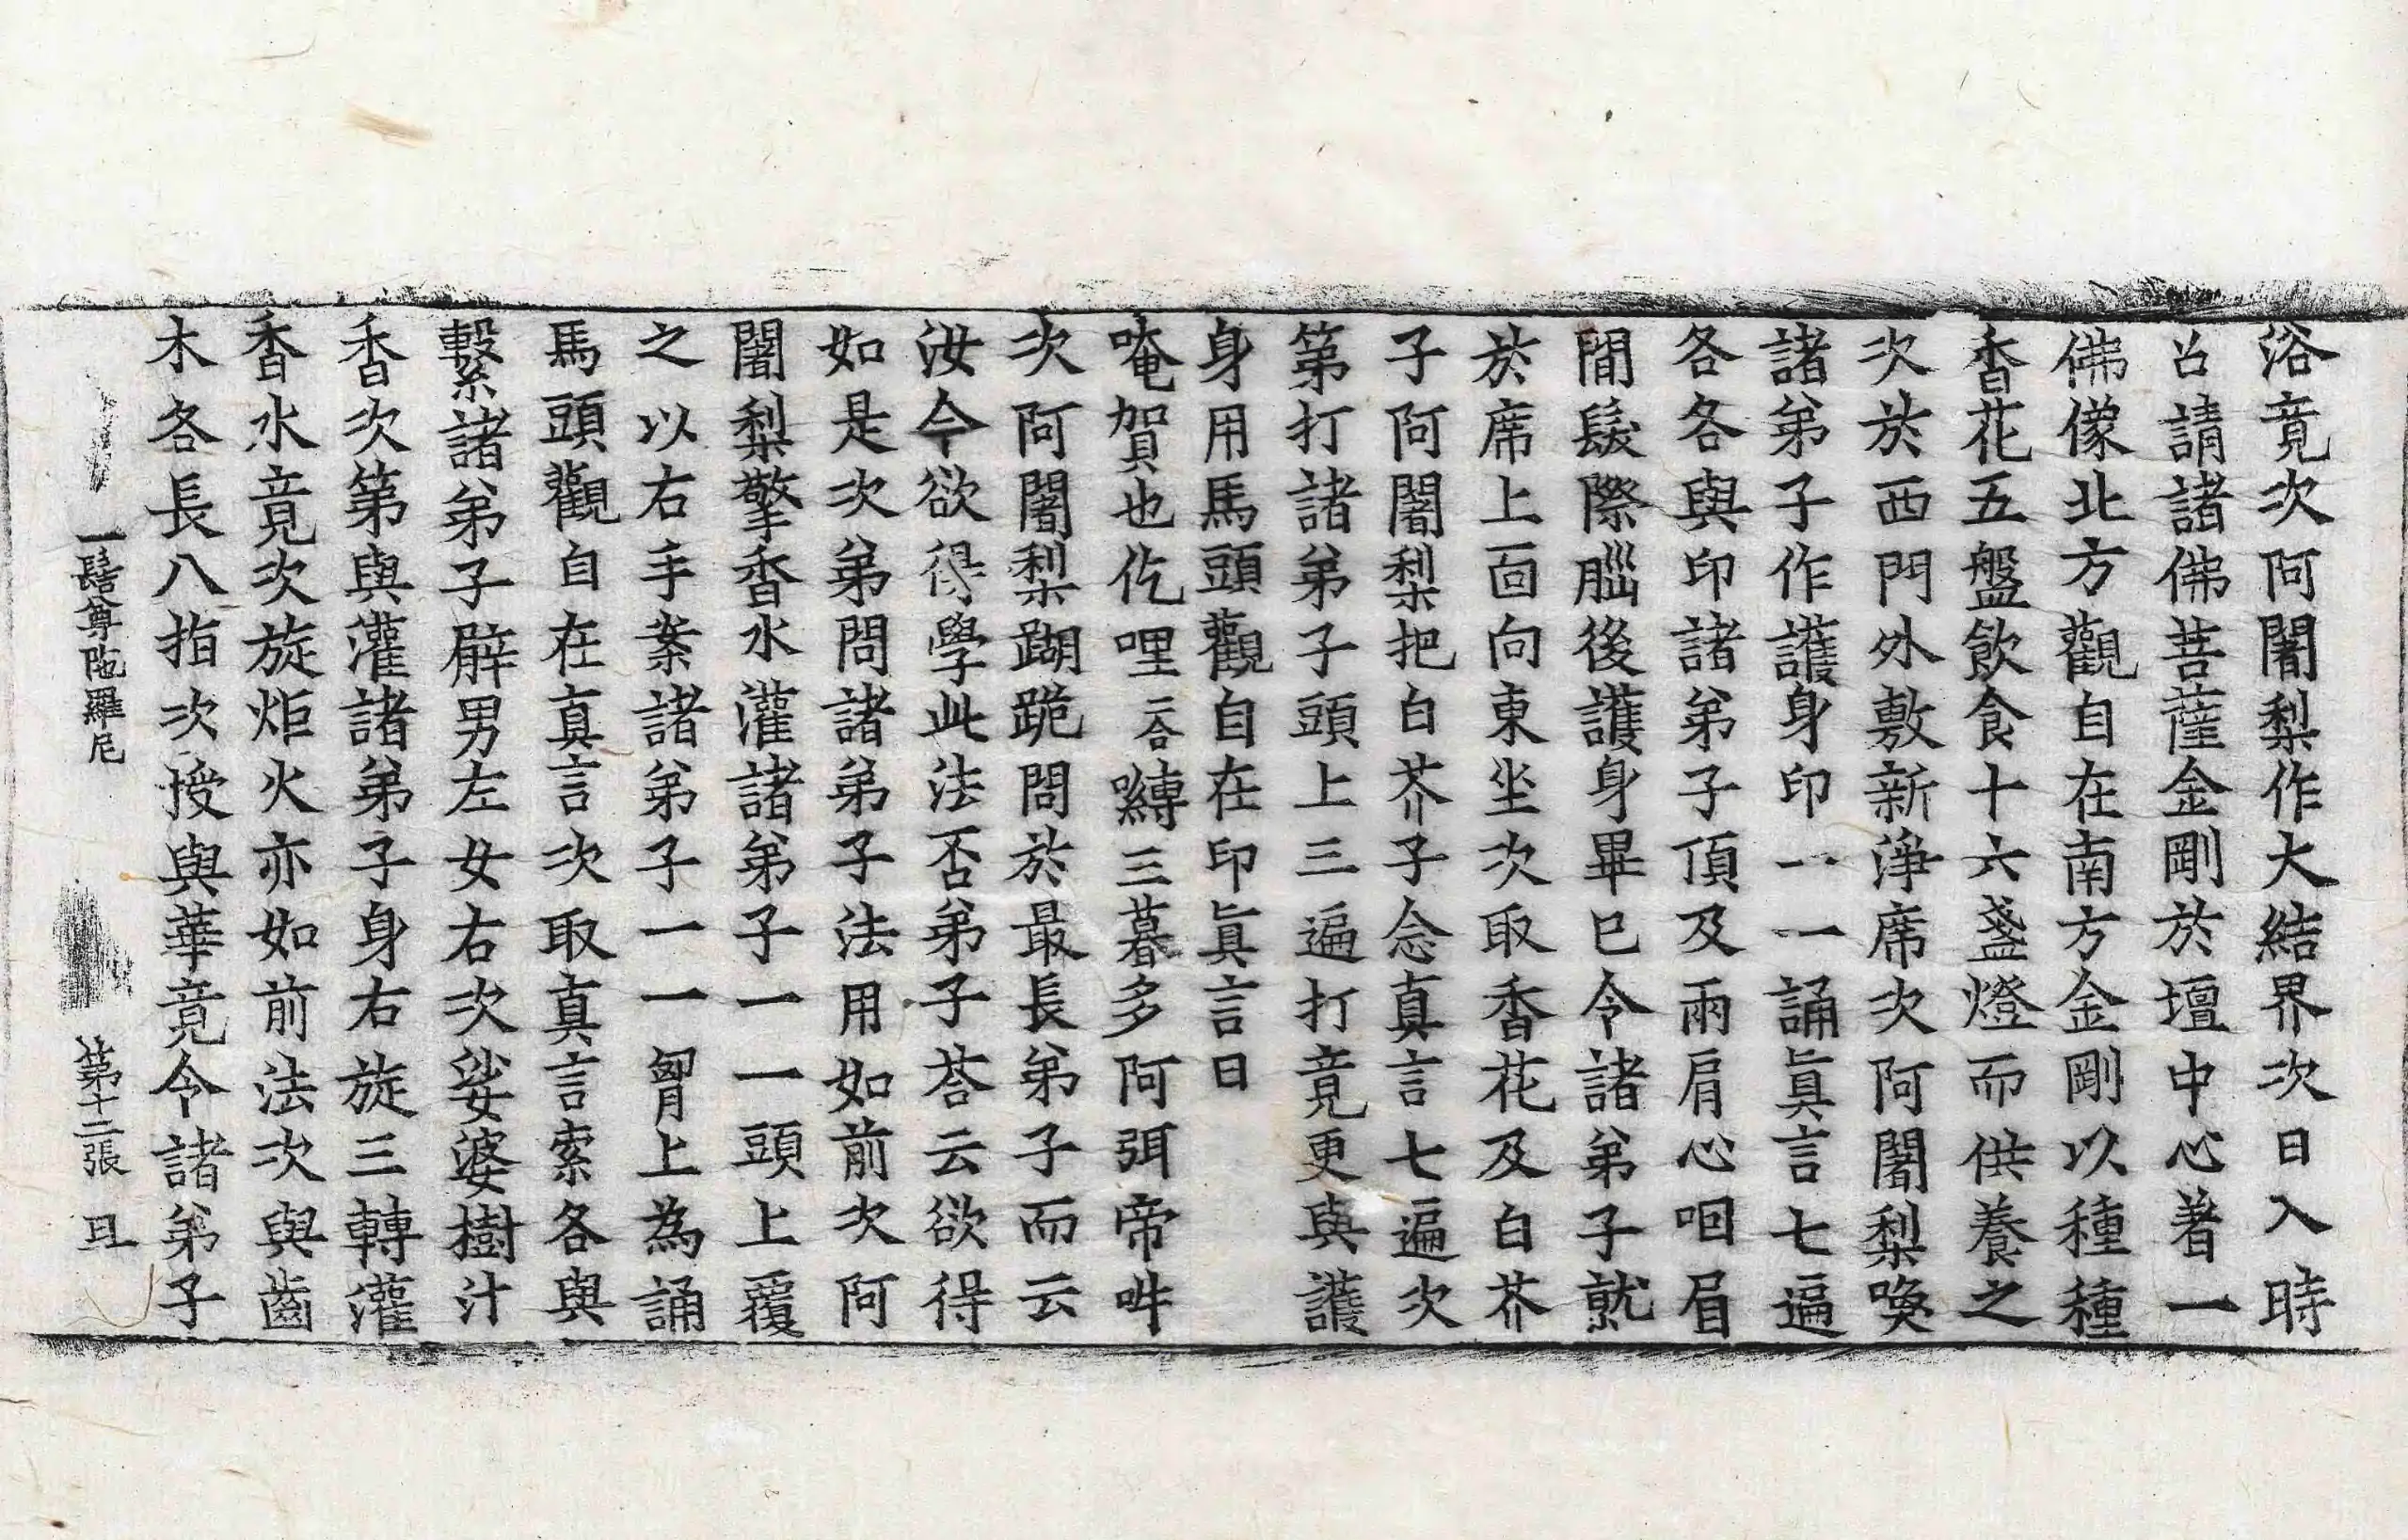 浴竟次阿闍梨作大結界次日入時
召請諸佛菩薩金剛於壇中心著一
佛像北方觀自在南方金剛以種種
香花五盤飲食十六盞燈而供養之
次於西門外敷新淨席次阿闍梨喚
諸弟子作護身印一一誦真言七遍
各各與印諸弟子頂及兩肩心咽眉
間髮際腦後護身畢已令諸弟子就
於席上面向東坐次取香花及白芥
子阿闍梨把白芥子念真言七遍次
第打諸弟子頭上三遍打竟更與護
身用馬頭觀自在印眞言曰
唵賀也仡哩二合嚩三暮多阿弭帝吽
次阿闍梨𨄔跪問於最長弟子而云
汝今欲得學此法否弟子荅云欲得
如是次弟問諸弟子法用如前次阿
闍梨擎香水灌諸弟子一一頭上覆
之以右手案諸弟子一一胷上為誦
馬頭觀自在真言次取真言索各與
繫諸弟子臂男左女右次娑婆樹汁
香次第與灌諸弟子身右旋三轉灌
香水竟次旋炬火亦如前法次與齒
木各長八指次授與華竟令諸弟子
一髻尊陁羅尼 第十二張 丑